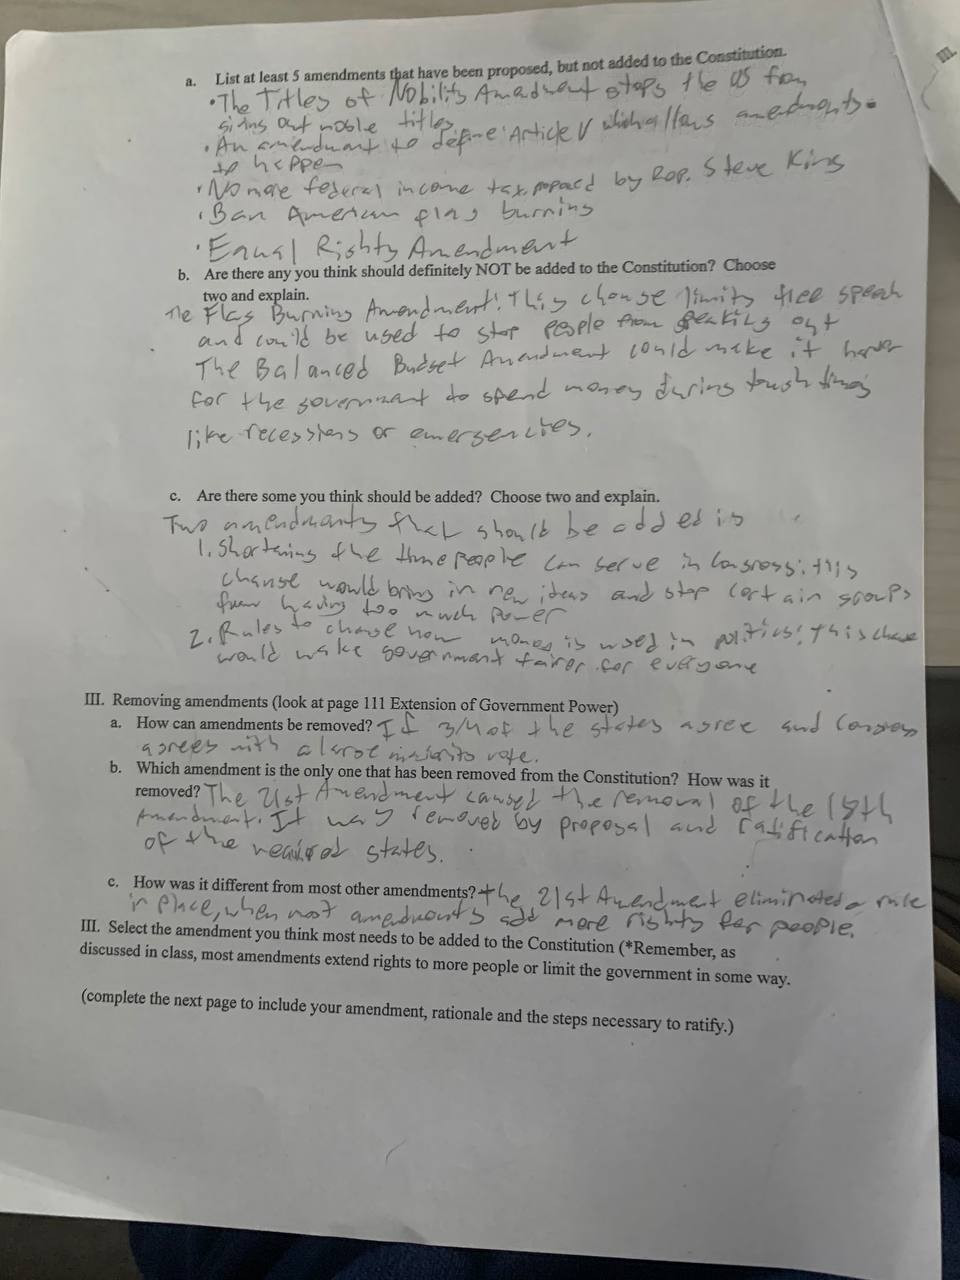 III.
a. List at least 5 amendments that have been proposed, but not added to the Constitution.
• The Titles of Nobility Amendment stops the US from
giving out noble titles
• An amendment to define Article V which allows amendments
to happen
• No more federal income tax, proposed by Rep. Steve King
• Ban American flag burning
• Equal Rights Amendment
b. Are there any you think should definitely NOT be added to the Constitution? Choose
two and explain.
The Flag Burning Amendment: This change limits free speech
and could be used to stop people from speaking out
The Balanced Budget Amendment could make it harder
for the government to spend money during tough times
like recessions or emergencies.
c. Are there some you think should be added? Choose two and explain.
Two amendments that should be added is
1. Shortening the time people can serve in Congress: this
change would bring in new ideas and stop certain groups
from having too much power
2. Rules to change how money is used in politics: this change
would make government fairer for everyone
III. Removing amendments (look at page 111 Extension of Government Power)
a. How can amendments be removed? If 3/4 of the states agree and Congress
agrees with a large majority vote.
b. Which amendment is the only one that has been removed from the Constitution? How was it
removed? The 21st Amendment caused the removal of the 18th
Amendment. It was removed by proposal and ratification
of the required states.
c. How was it different from most other amendments? The 21st Amendment eliminated a rule
in place, when most amendments add more rights for people.
III. Select the amendment you think most needs to be added to the Constitution (*Remember, as
discussed in class, most amendments extend rights to more people or limit the government in some way.
(complete the next page to include your amendment, rationale and the steps necessary to ratify.)